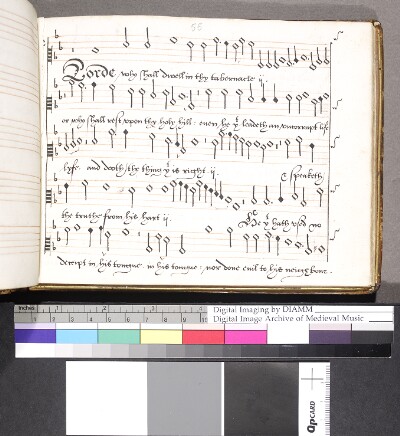 55
Lorde, who shall dwell in thy tabernacle ij.
or who shall rest upon thy holy hill: even he yt leadeth an uncorrupt life
lyfe, and doth the thing yt is right ij. & speaketh
the truthe from his hart ij. He yt hath used no
deceipt in his tongue, in his tongue, nor done evil to his neighbour.
inches 1 2 3 4 5 6 7
cm 1 2 3 4 5 6 7 8 9 10
Digital Imaging by DIAMM
Digital Image Archive of Medieval Music
QPCARD